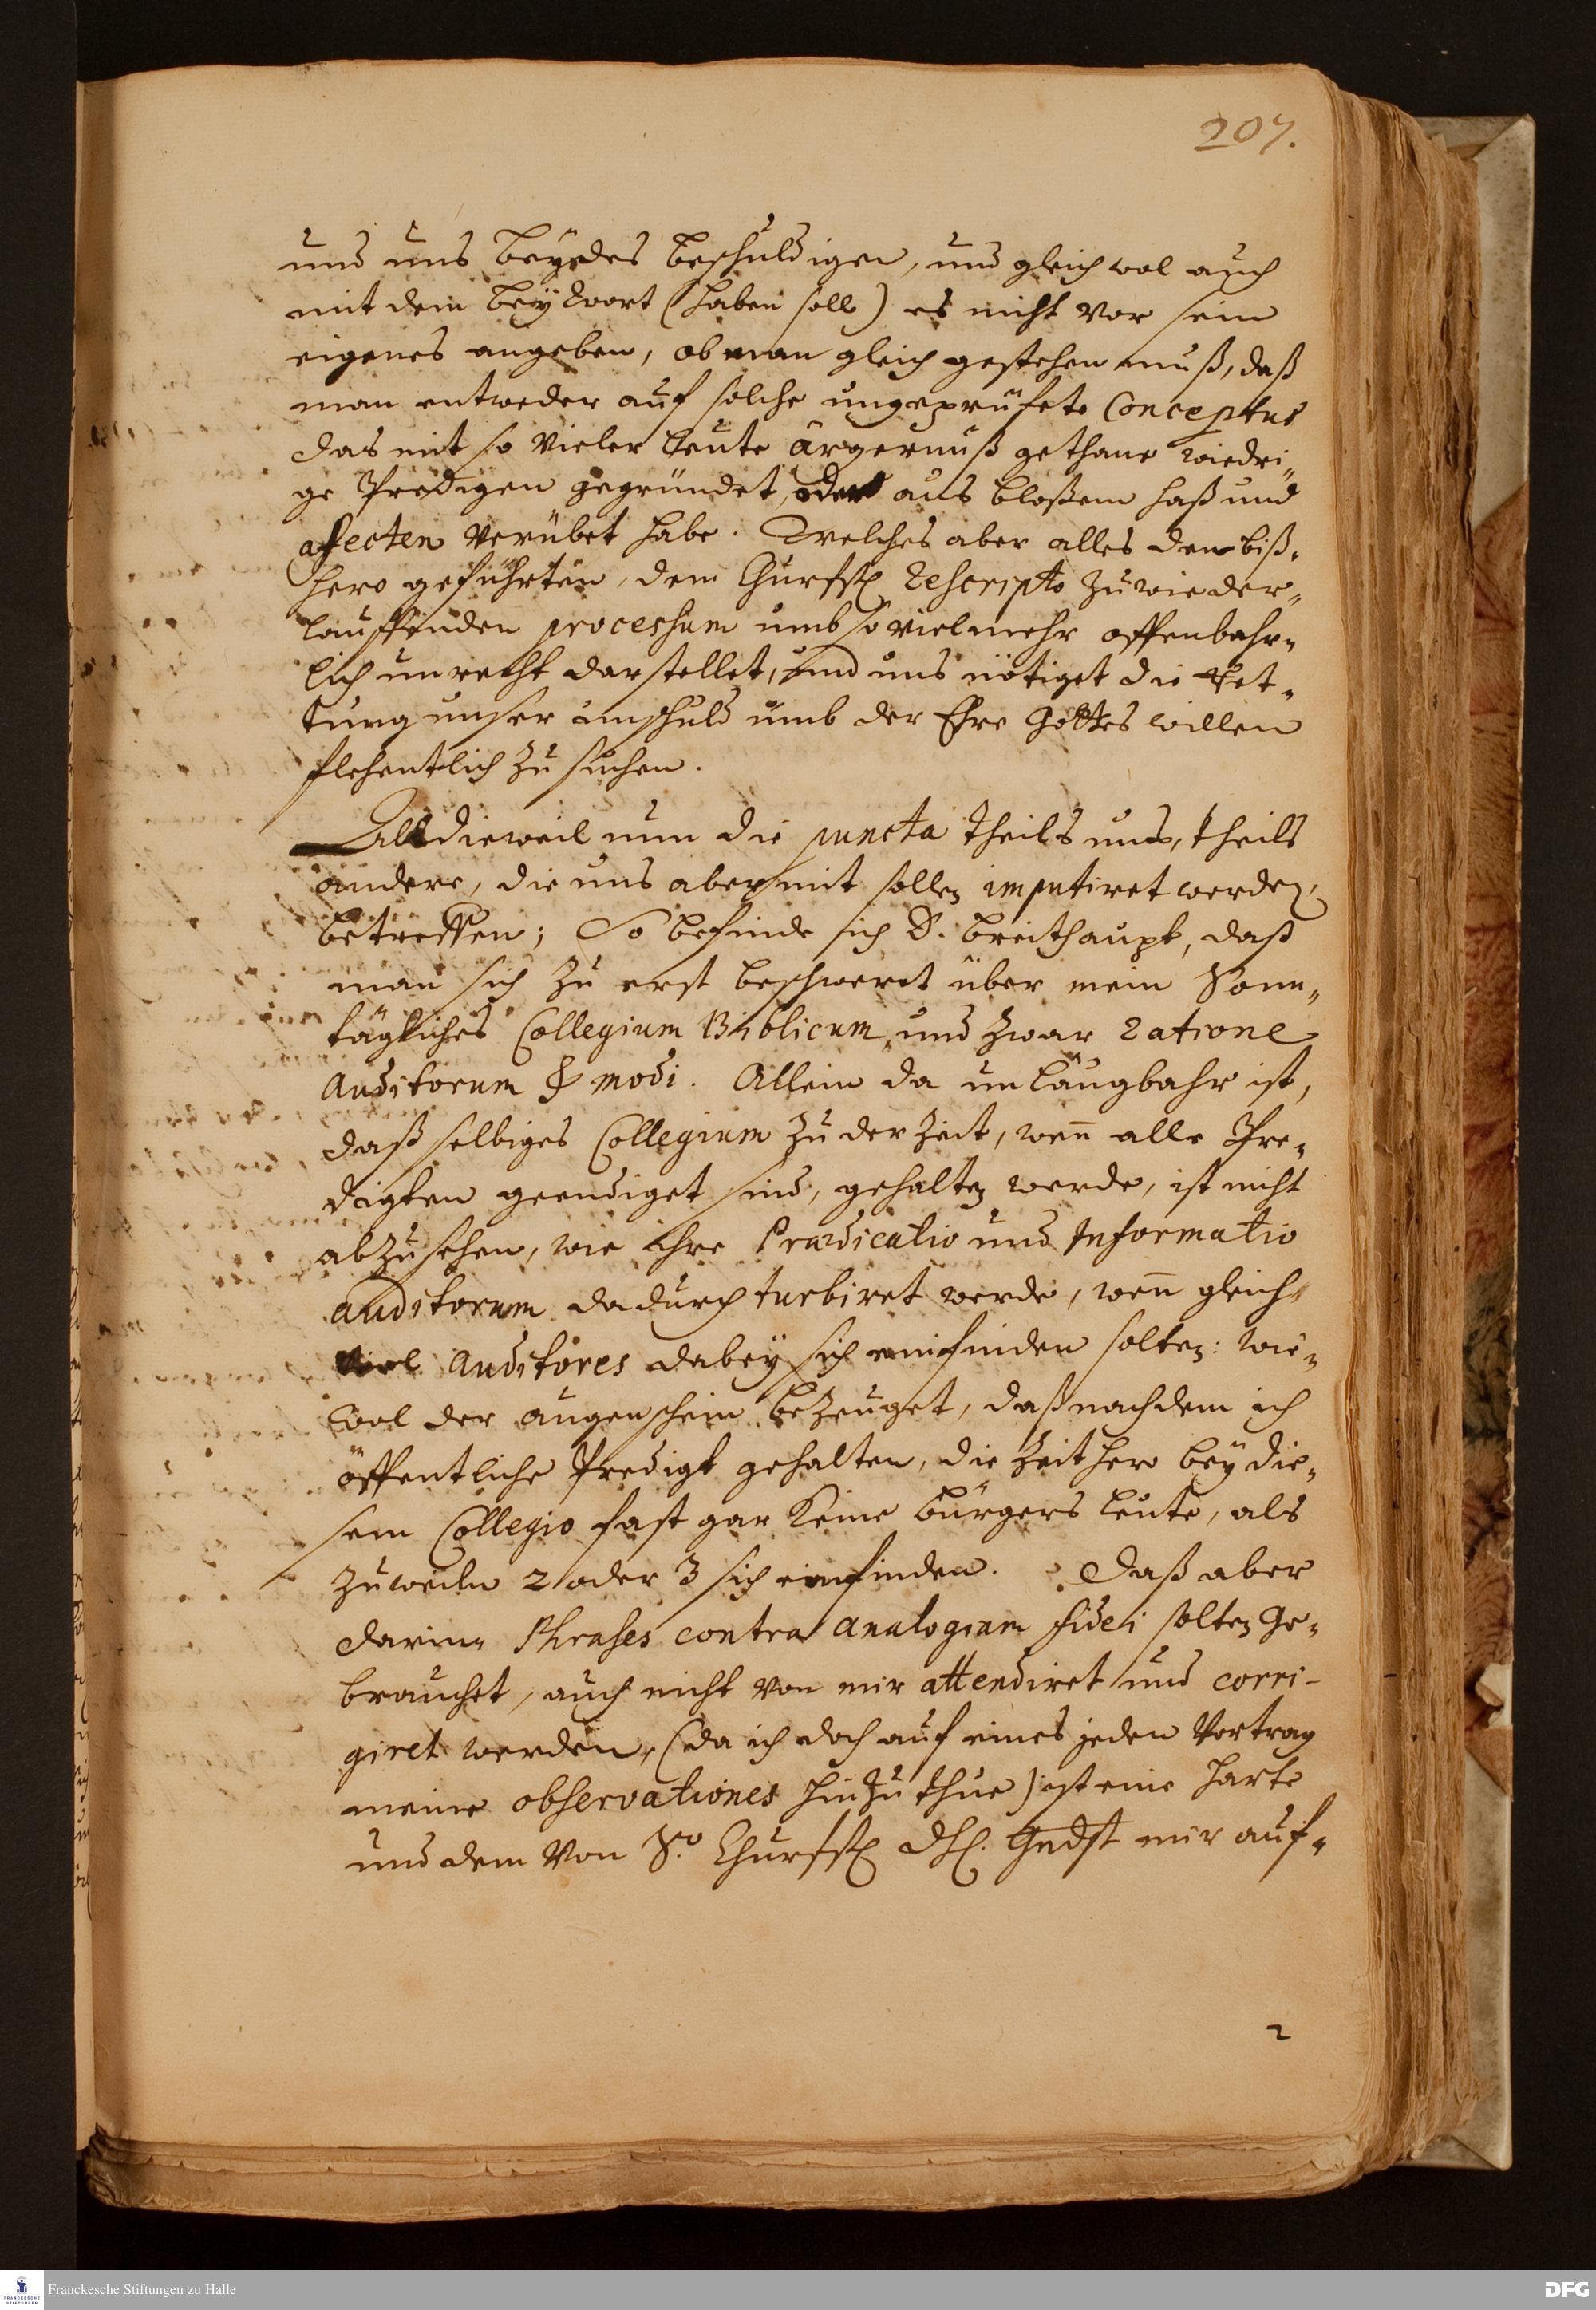 207.
und uns beydes beschuldigen, und gleichwol auch
mit dem beywort (haben soll) es nicht vor sein
eigenes angeben, ob man gleich gestehen muß, daß
man entweder auf solche ungeprüfete Conceptus
das mit so vieler leute ärgernuß gethane wiedri„
ge Predigen gegründet, oder aus bloßem haß und
affecten verübet habe. Welches aber alles den biß„
hero geführten, dem Churfstl Rescripto zuwieder„
lauffenden processum umb so vielmehr offenbahr„
lich unrecht darstellet, und uns nötiget die Ret„
tung unser unschuld umb der Ehre Gottes willen
flehentlich zu suchen.
Alldieweil nun die puncta theils uns, theils
andere, die uns aber mit sollen imputiret werden,
betreffen; So befinde ich D. Breithaupt, daß
man sich zu erst beschwert über mein Sonn„
tägliches Collegium Biblicum, und zwar ratione
Auditorum & modi. Allein da unläugbahr ist,
daß selbiges Collegium zu der Zeit, wen̄ alle Pre„
digten geendiget sind, gehalten werde, ist nicht
abzusehen, wie ihre Prædicatio und Informatio
auditorum dadurch turbiret werde, wen̄ gleich
viel Auditores dabey sich einfinden solten: wie„
wol der augenschein bezeuget, daß nachdem ich
öffentliche Predigt gehalten, die Zeithero bey die„
sem Collegio fast gar keine bürgers leute, als
zuweiln 2 oder 3 sich einfinden. Daß aber
darinn Phrases contra analogiam fidei solten ge„
brauchet, auch nicht von mir attendiret und corri-
giret werden, (da ich doch auf eines jeden Vortrag
meine observationes hinzu thue) ist eine harte
und dem von Sr. Churfstl Dhl. Gndst mir auf„
2
Franckesche Stiftungen zu Halle
FRANCKESCHE STIFTUNGEN
DFG